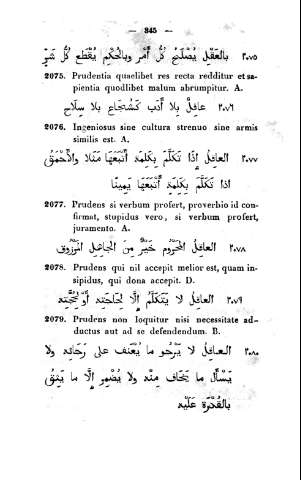 — 345 —
٢٠٧٥ بالعَقْلِ يُصْلَحُ كُلُّ أَمْرٍ وبالحُكْمِ يُقْطَعُ كُلُّ شَرٍّ
2075. Prudentia quaelibet res recta redditur et sa-
pientia quodlibet malum abrumpitur. A.
٢٠٧٦ عاقِلٌ بِلا أَدَبٍ كَشُجاعٍ بِلا سِلاحٍ
2076. Ingeniosus sine cultura strenuo sine armis
similis est. A.
٢٠٧٧ العاقِلُ إذا تَكَلَّمَ بِكَلِمَةٍ أَتْبَعَها مَثَلًا والأَحْمَقُ
اذا تَكَلَّمَ بِكَلِمَةٍ أَتْبَعَها يَمِينًا
2077. Prudens si verbum profert, proverbio id con-
firmat, stupidus vero, si verbum profert,
juramento. A.
٢٠٧٨ العاقِلُ المَحْرُومُ خَيْرٌ مِنَ الجاهِلِ المَرْزُوقِ
2078. Prudens qui nil accepit melior est, quam in-
sipidus, qui dona accepit. D.
٢٠٧٩ العاقِلُ لا يَتَكَلَّمُ إلَّا لِحاجَتِهِ أَوْ لِحُجَّتِهِ
2079. Prudens non loquitur nisi necessitate ad-
ductus aut ad se defendendum. B.
٢٠٨٠ العاقِلُ لا يَرْجُو ما يُعَنَّفُ على رَجائِهِ ولا
يَسْأَلُ ما يَخافُ مِنْهُ ولا يُضْمِرُ إلَّا ما يَثِقُ
بِالقُدْرَةِ عَلَيْهِ